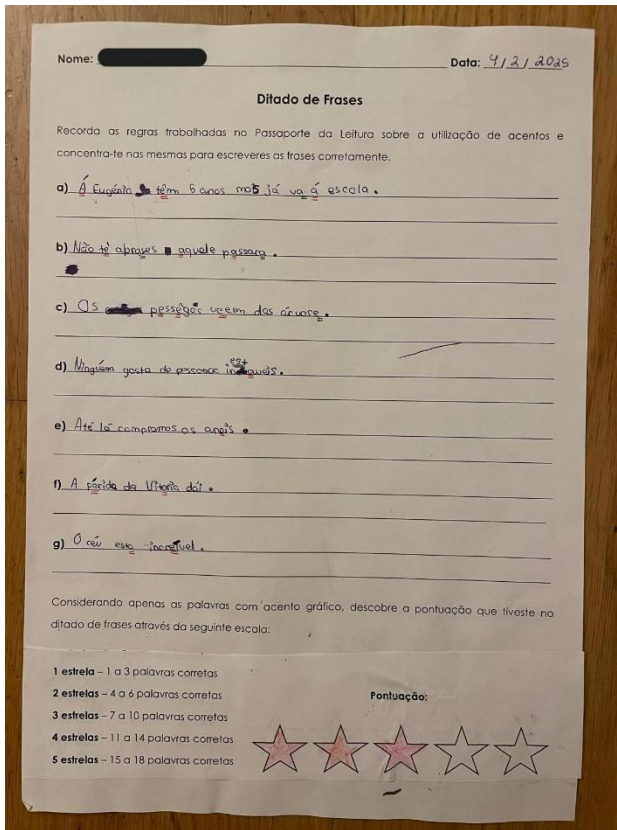 Nome:
Data: 4/2/2025
Ditado de Frases
Recorda as regras trabalhadas no Passaporte da Leitura sobre a utilização de acentos e
concentra-te nas mesmas para escreveres as frases corretamente.
a) Á Eugénia têm 6 anos mas já va á escola.
b) Não té abroses aquale passara.
c) Os pessêgos veem das árvore.
d) Ninguém gosta de pessoas
e) Até lá compramos os anais.
f) A fórida da Vitoria dói.
g) O céu esta incretvel.
Considerando apenas as palavras com acento gráfico, descobre a pontuação que tiveste no
ditado de frases através da seguinte escala:
1 estrela – 1 a 3 palavras corretas
2 estrelas – 4 a 6 palavras corretas
Pontuação:
3 estrelas – 7 a 10 palavras corretas
4 estrelas – 11 a 14 palavras corretas
5 estrelas – 15 a 18 palavras corretas